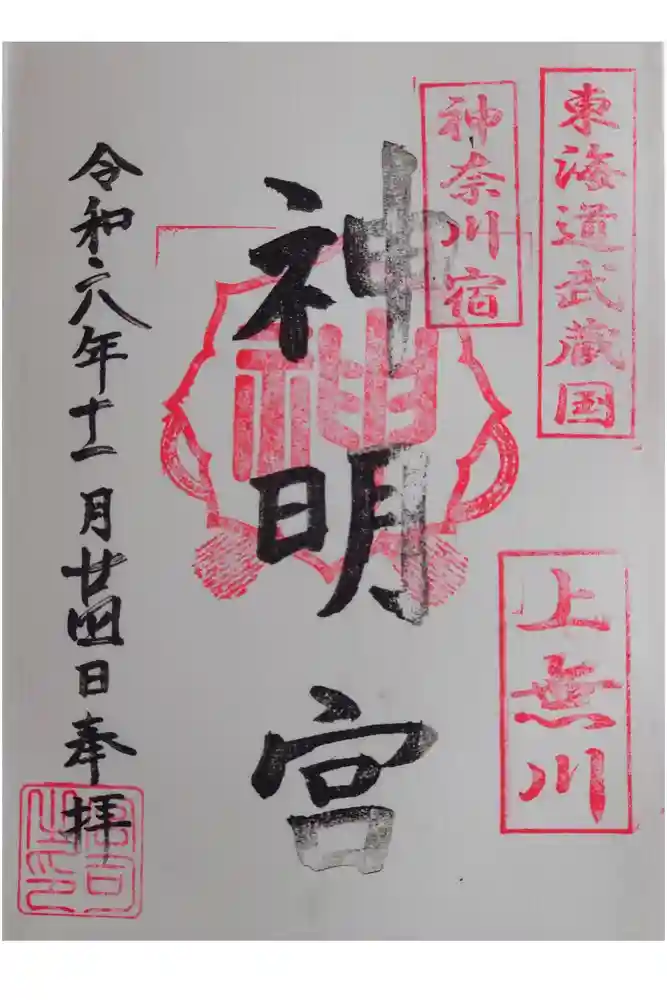 東海道武蔵国
神奈川宿
上無川
神
神明宮
令和六年十一月廿四日奉拝
宮司之印